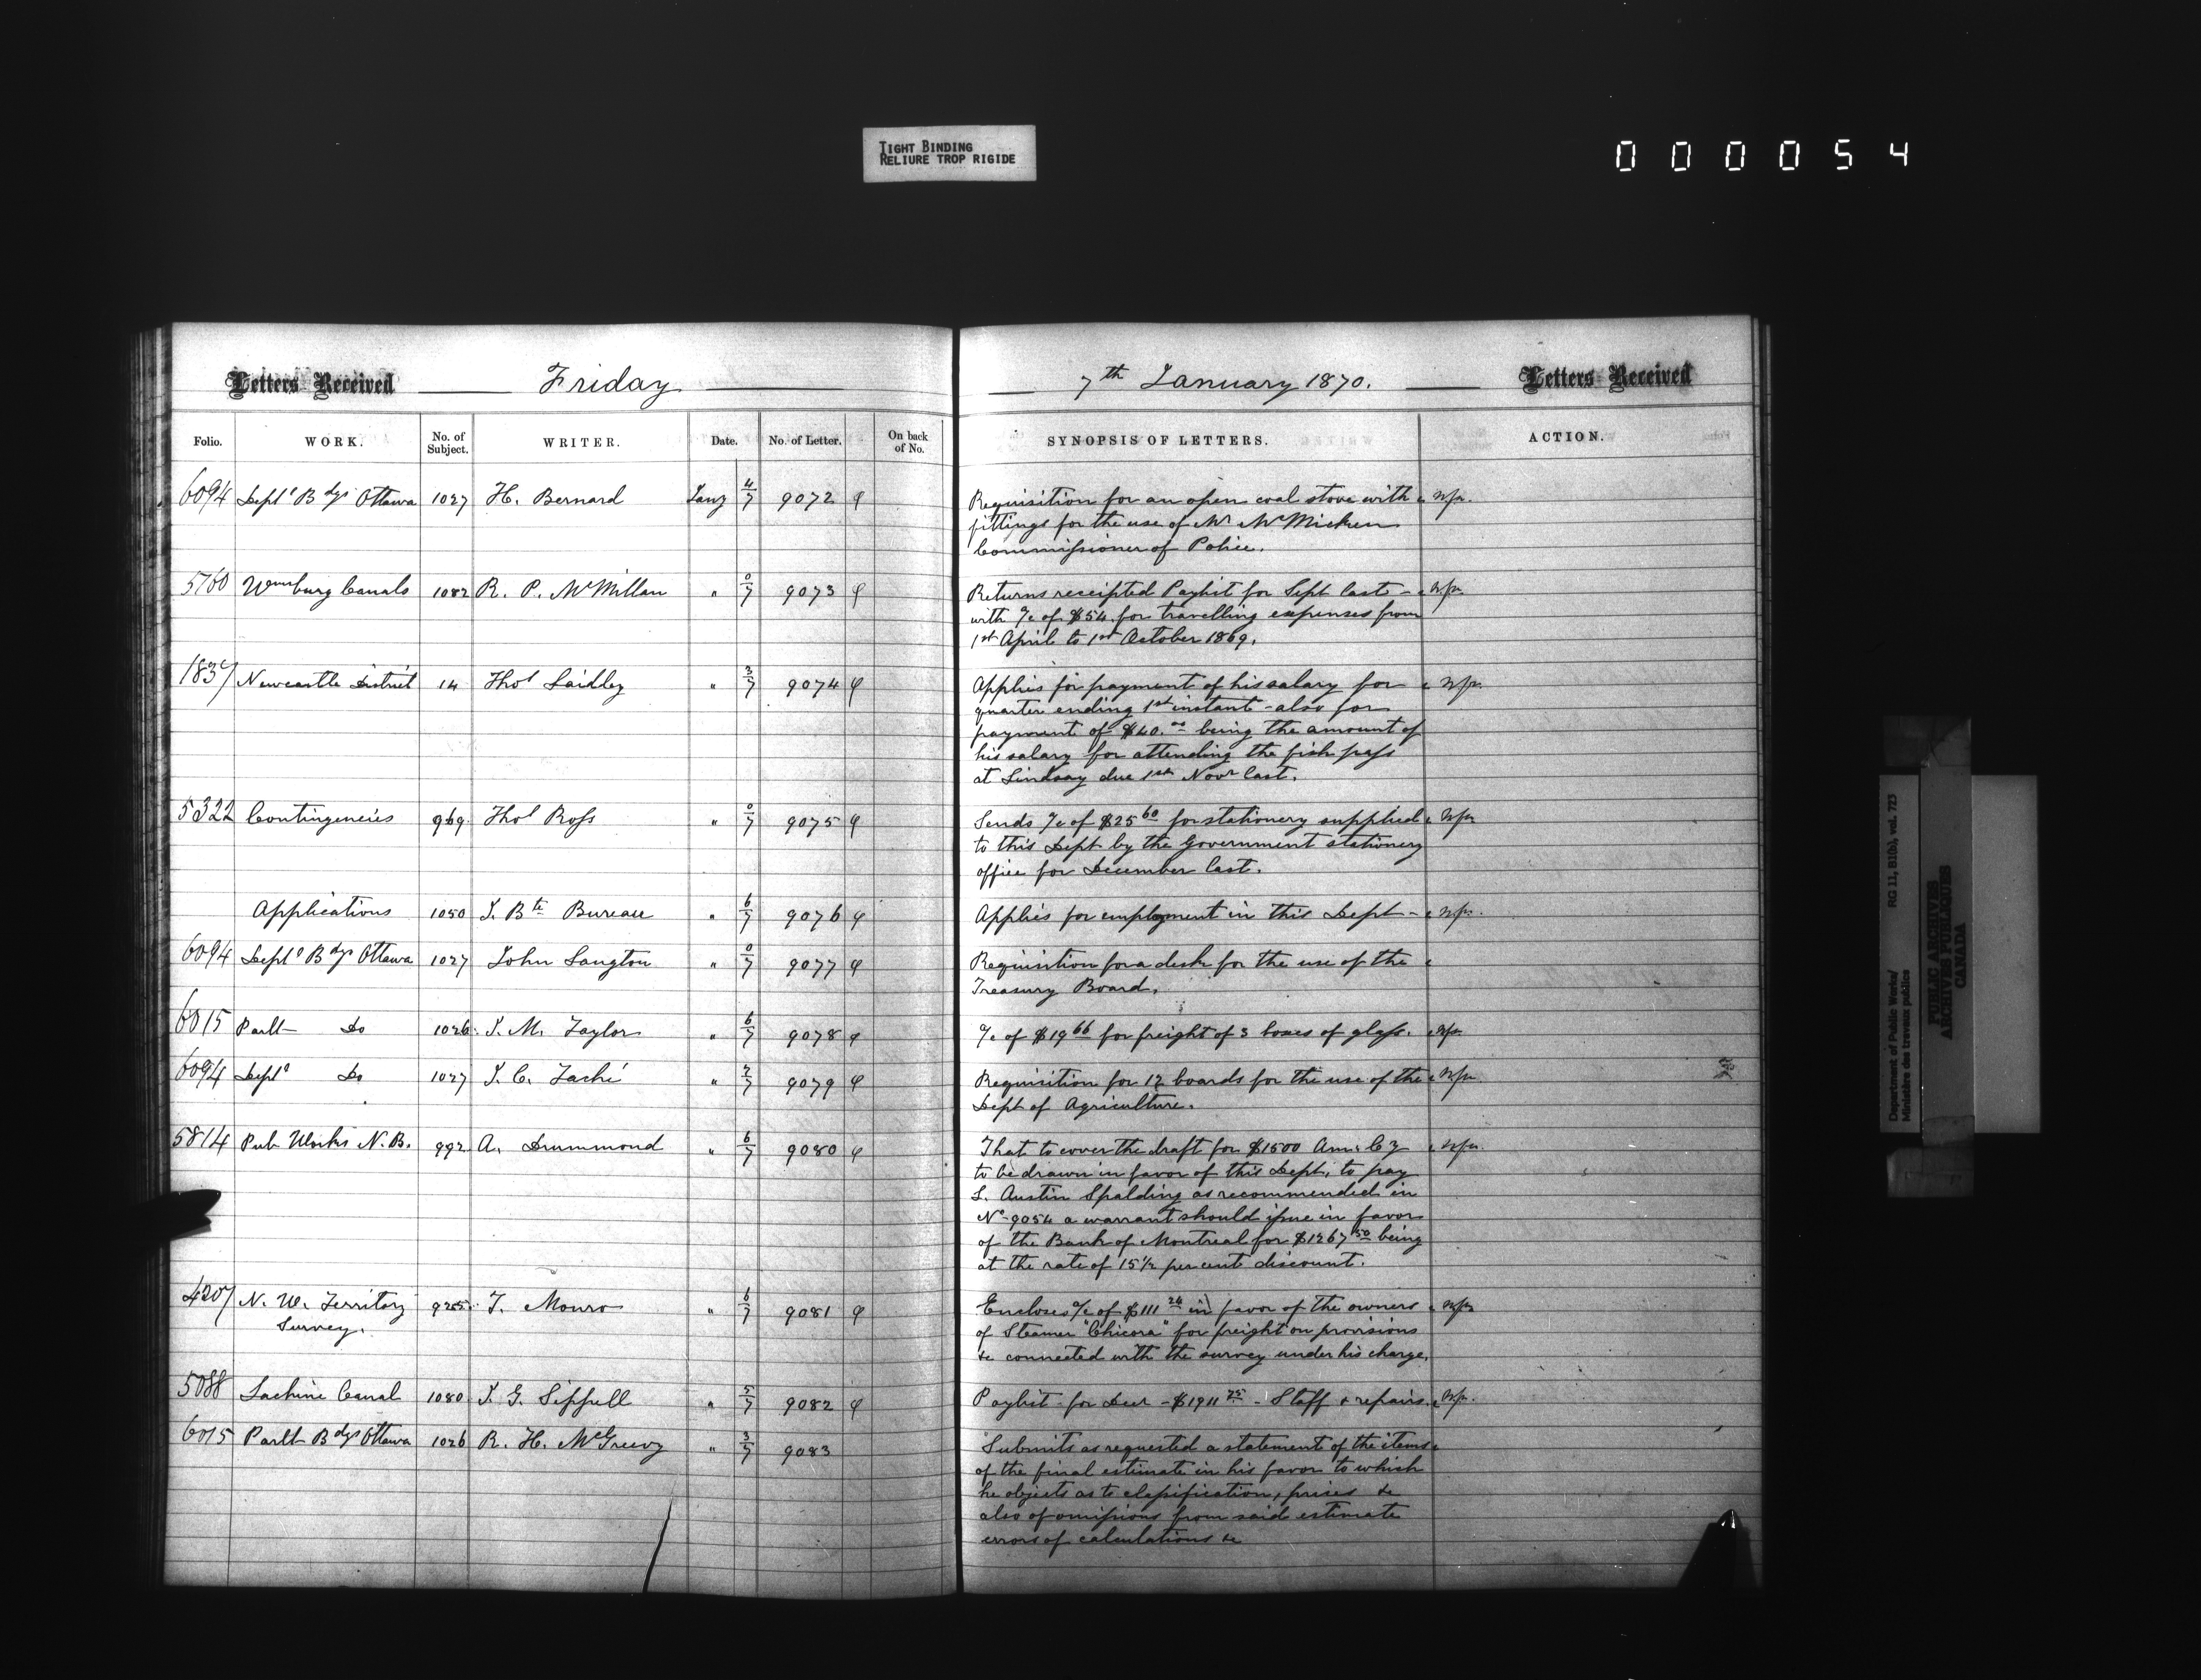 TIGHT BINDING
RELIURE TROP RIGIDE
000054
Letters Received Friday
7th January 1870. Letters Received
Folio. WORK. No. of Subject. WRITER. Date. No. of Letter. On back of No.
SYNOPSIS OF LETTERS. ACTION.
6094 Deptl Bdgs Ottawa 1027 H. Bernard Jany 4/7 9072
Requisition for an open coal stove with
fittings for the use of Mr McMicken
Commissioner of Police.
5760 Wmsburg Canals 1082 R. P. McMillan " 0/7 9073
Returns receipted Paylist for Sept last -
with a/c of $54. for travelling expenses from
1st April to 1st October 1869.
1837 Newcastle District 14 Thos Laidley " 3/7 9074
Applies for payment of his salary for
quarter ending 1st instant - also for
payment of $40.00 being the amount of
his salary for attending the fish pass
at Lindsay due 1st Novr last.
5322 Contingencies 969 Thos Ross " 0/7 9075
Sends a/c of $25 60 for stationery supplied
to this Dept by the Government stationery
office for December last.
Applications 1050 J. Bte Bureau " 6/7 9076
Applies for employment in this Dept -
6094 Deptl Bdgs Ottawa 1027 John Langton " 0/7 9077
Requisition for a desk for the use of the
Treasury Board.
6015 Parlt Do 1026 J. M. Taylor " 6/7 9078
a/c of $19 66 for freight of 3 boxes of glass.
6094 Deptl Do 1027 J. C. Taché " 7/7 9079
Requisition for 12 boards for the use of the
Dept of Agriculture.
5814 Pub Works N. B. 992 A. Drummond " 6/7 9080
That to cover the draft for $1500 Am. Cy
to be drawn in favor of this Dept, to pay
L. Austin Spalding as recommended in
No 9054 a warrant should issue in favor
of the Bank of Montreal for $1267 50 being
at the rate of 15 1/2 per cent discount.
4207 N. W. Territory 925 T. Monro " 6/7 9081
Survey.
Encloses a/c of $111 24 in favor of the owners
of Steamer "Chicora" for freight on provisions
&c connected with the survey under his charge.
5088 Lachine Canal 1080 J. G. Sippell " 5/7 9082
Paylist for Decr - $1911 75 - Staff & repairs.
6015 Parlt Bdgs Ottawa 1026 R. H. McGreevy " 3/7 9083
Submits as requested a statement of the items
of the final estimate in his favor to which
he objects as to classification, prices &c
also of omissions from said estimate
errors of calculations &c
Department of Public Works/ RG 11, B1(b), vol. 723
Ministère des travaux publics
PUBLIC ARCHIVES
ARCHIVES PUBLIQUES
CANADA